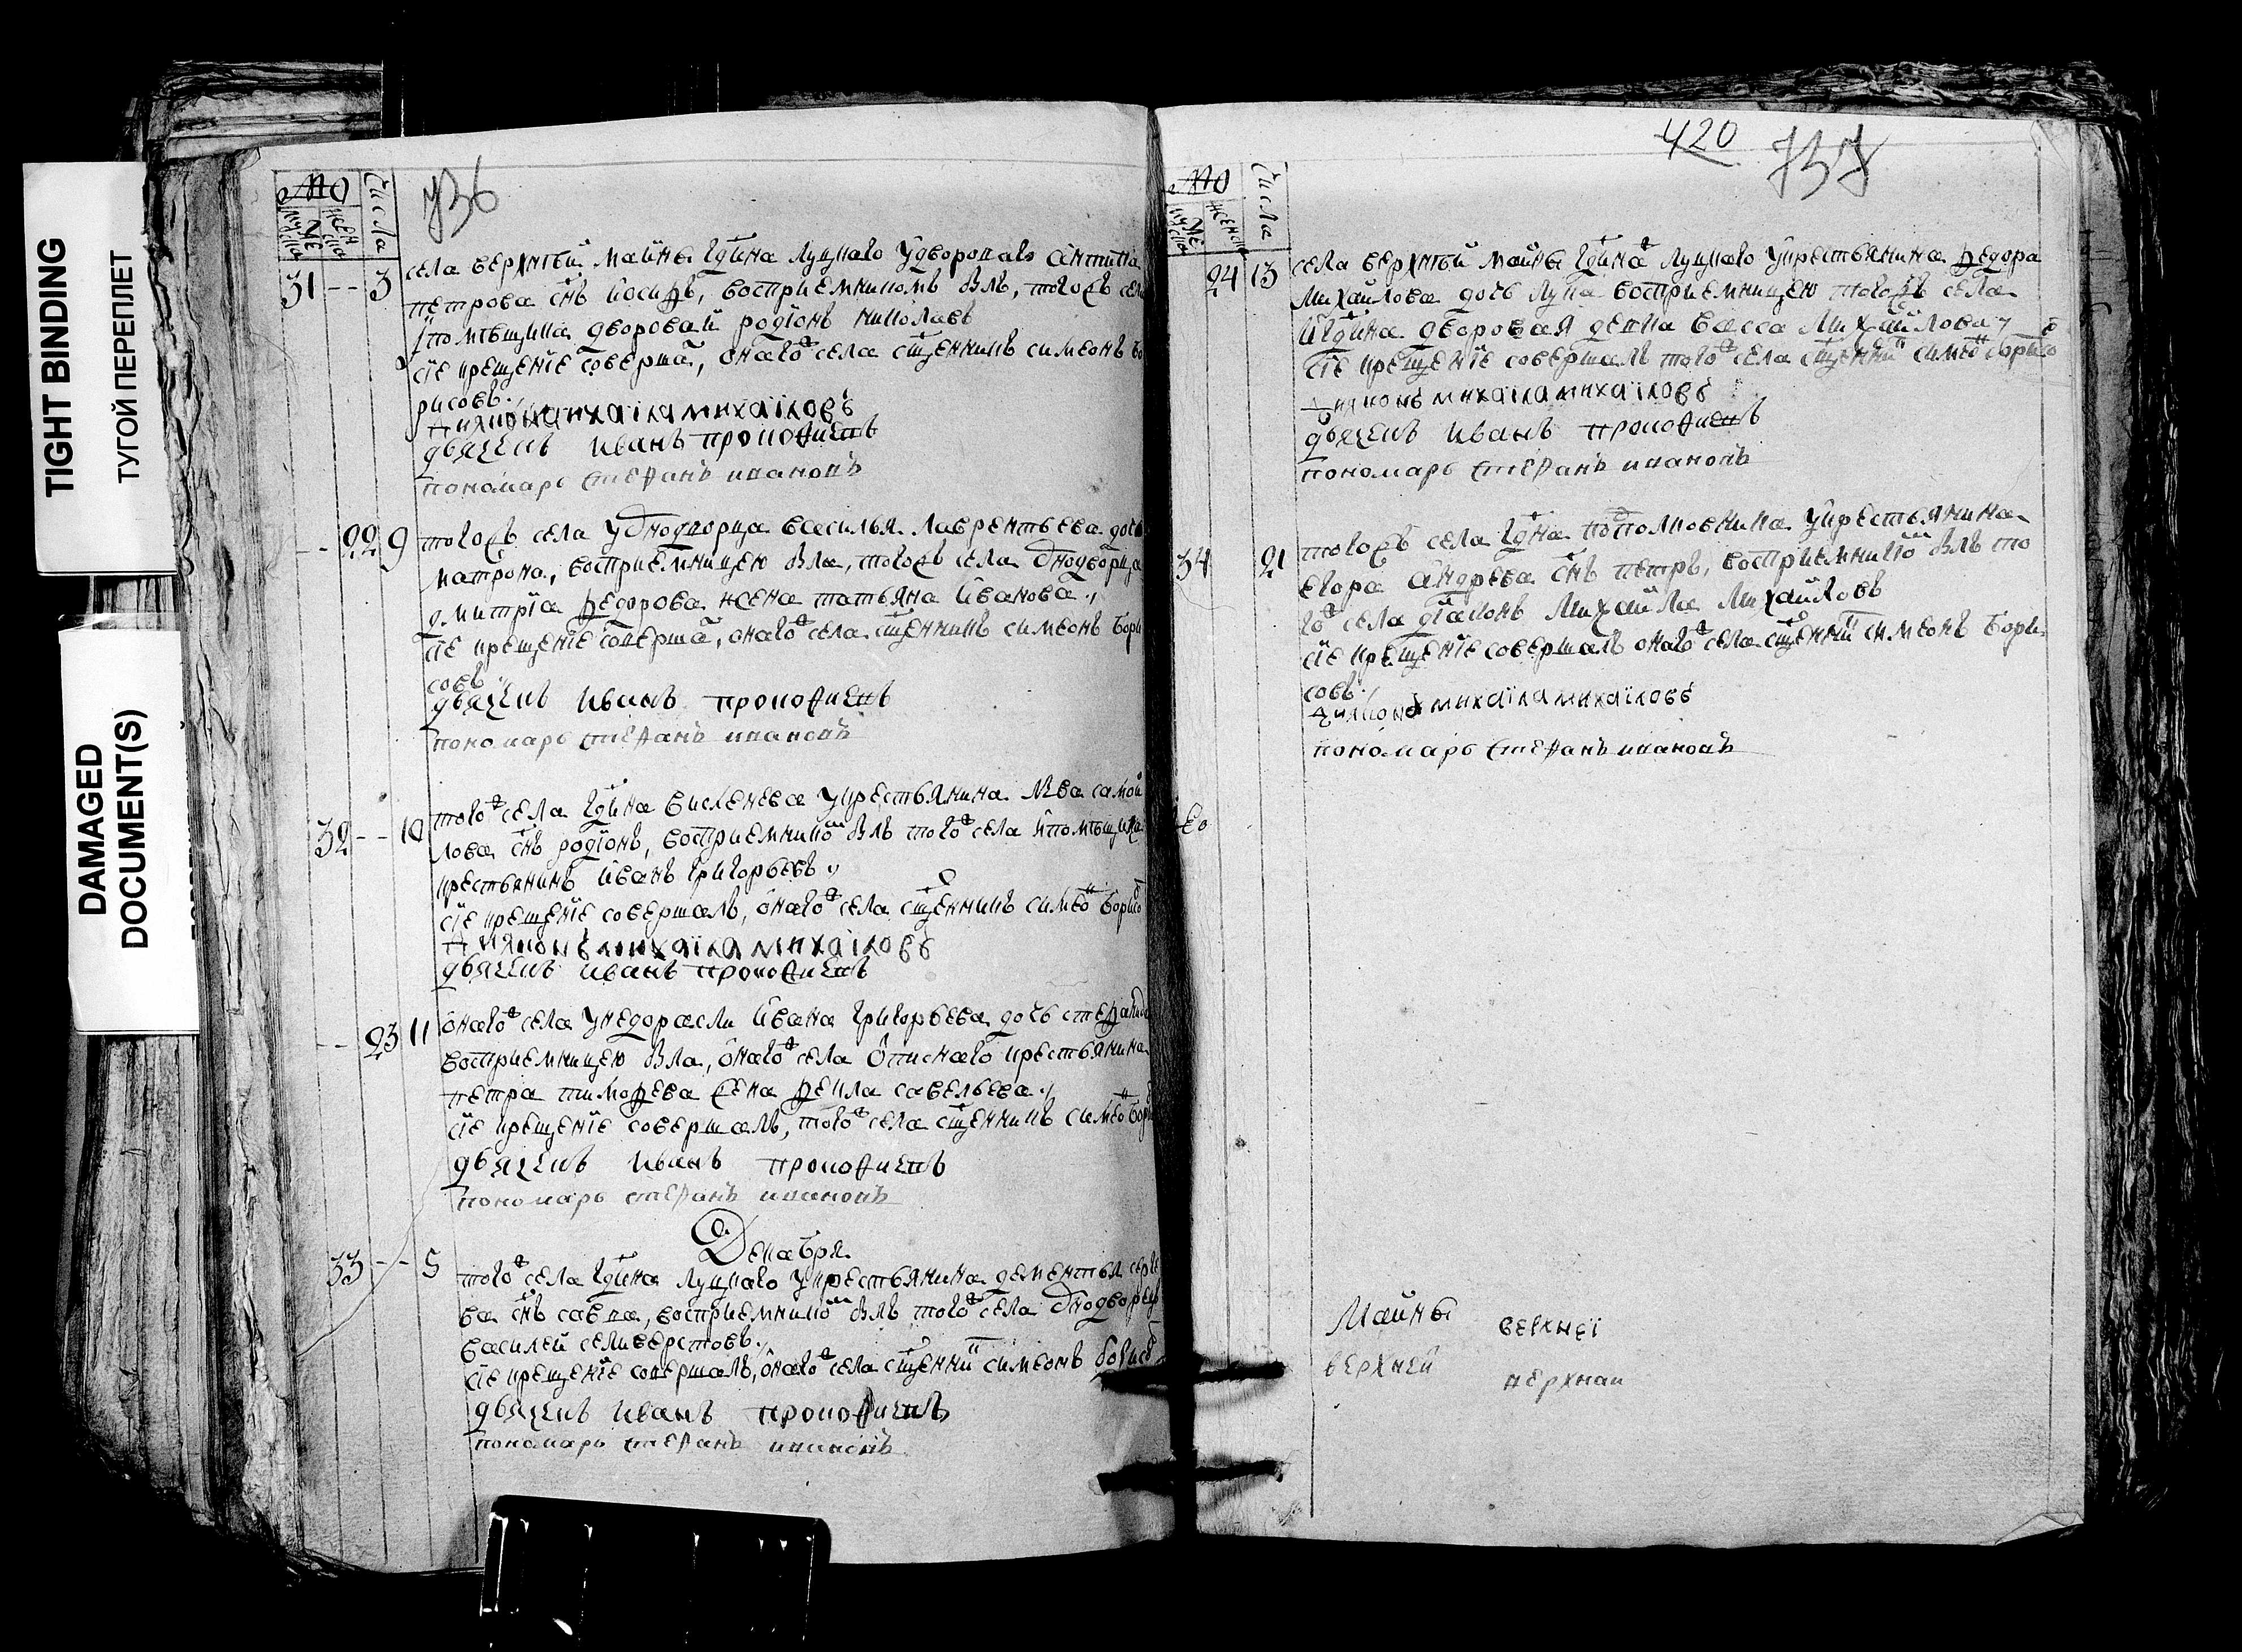 TIGHT BINDING
ТУГОЙ ПЕРЕПЛЕТ
DAMAGED
DOCUMENT(S)
736
числа
31 -- 3
села верхнтьй майны гдина луцкаго удвороваго антипа
петрова снъ иосифъ, восприемникомъ былъ, тогожъ села
помѣщика дворовай родїонъ николаевъ
сїе крещенїе соверша, онаго села сщенникъ симеонъ бо
рисовъ
дияконъ михаила михаиловъ
дьячекъ иванъ прокофиевъ
пономарь стефанъ ивановъ
-- 22 9
тогожъ села уоднодворца василья лаврентьева дочь
матрона, восприемницею была, тогожъ села однодворца
дмитрїа федорова жена татьяна иванова
сїе крещенїе соверша, онаго села сщенникъ симеонъ бори
совъ
дьячекъ иванъ прокофиевъ
пономарь стефанъ ивановъ
32 -- 10
того села гдина висленева укрестьянина лва самой
лова снъ родїонъ, восприемнико былъ того села помѣщика
крестьянинъ иванъ григорьевъ
сїе крещенїе совершалъ, онаго села сщенникъ симео борисо
дияконъ михаила михаиловъ
дьячекъ иванъ прокофиевъ
-- 23 11
онаго села унедоросли ивана григорьева дочь стефанида
восприемницею была, онаго села описнаго крестьянина
петра тимофева жена фекла савельева
сїе крещенїе совершалъ, того села сщенникъ симео бори
дьячекъ иванъ прокофиевъ
пономарь стефанъ ивановъ
Декабря
33 -- 5
того села гдина луцкаго укрестьянина дементья серге
ва снъ савва, восприемнико былъ того села однодворец
василей селиверстовъ
сїе крещенїе совершалъ, онаго села сщенни симеонъ борисо
дьячекъ иванъ прокофиевъ
пономарь стефанъ ивановъ
420 737
числа
24 13
села верхнтьй майны гдина луцкаго укрестьянина федора
михайлова дочь лупа восприемницею тогожъ села
гдина дворовая девка васса михайлова
сїе крещенїе совершалъ того села сщенни симео борисо
дияконъ михаила михаиловъ
дьячекъ иванъ прокофиевъ
пономарь стефанъ ивановъ
34 21
тогожъ села гдна укрестьянина
егора андрева снъ петръ, восприемнико былъ то
го села дїаконъ михайла михайловъ
сїе крещенїе совершалъ онаго села сщенни симеонъ бори
совъ
диякона михаила михаиловъ
пономарь стефанъ ивановъ
Майны верхнеї
верхней верхнаи